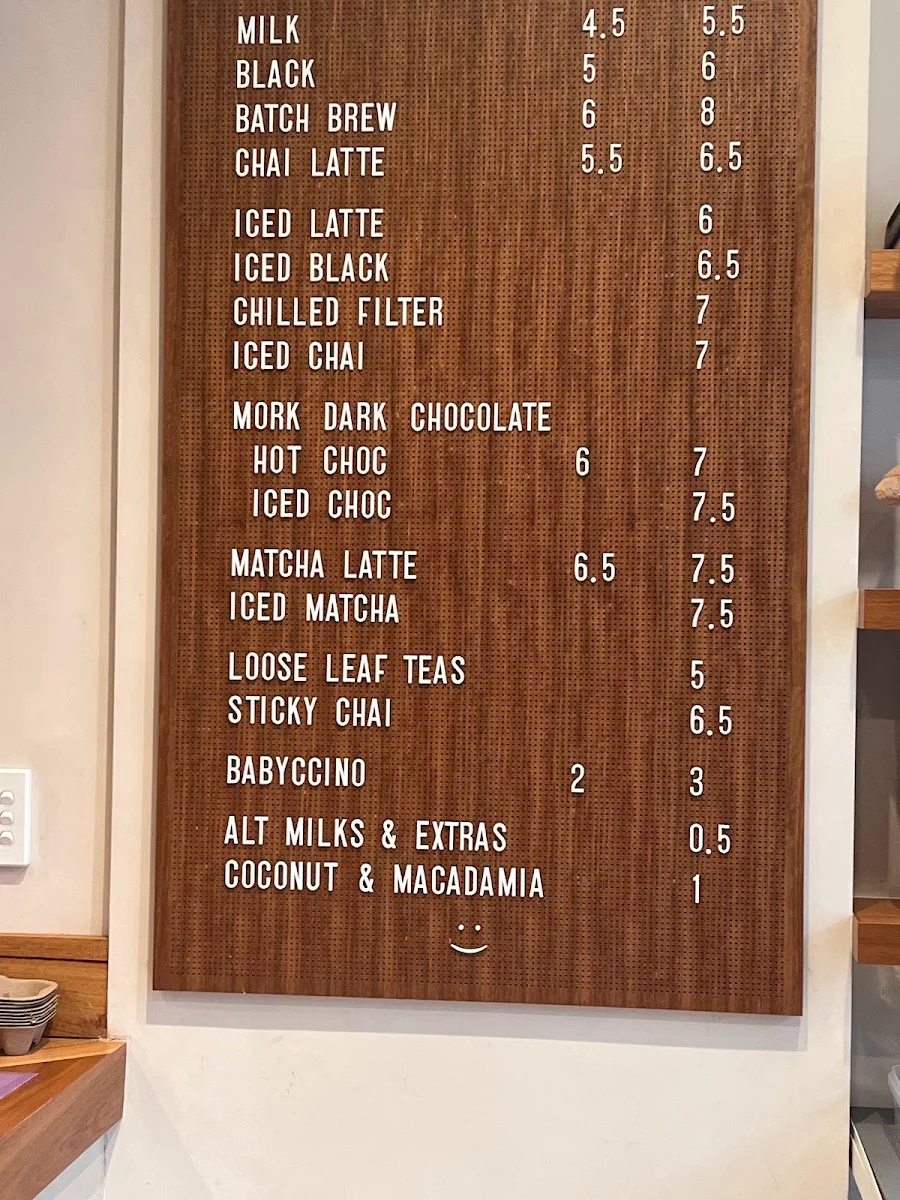 MILK 4.5 5.5
BLACK 5 6
BATCH BREW 6 8
CHAI LATTE 5.5 6.5
ICED LATTE 6
ICED BLACK 6.5
CHILLED FILTER 7
ICED CHAI 7
MORK DARK CHOCOLATE
HOT CHOC 6 7
ICED CHOC 7.5
MATCHA LATTE 6.5 7.5
ICED MATCHA 7.5
LOOSE LEAF TEAS 5
STICKY CHAI 6.5
BABYCCINO 2 3
ALT MILKS & EXTRAS 0.5
COCONUT & MACADAMIA 1